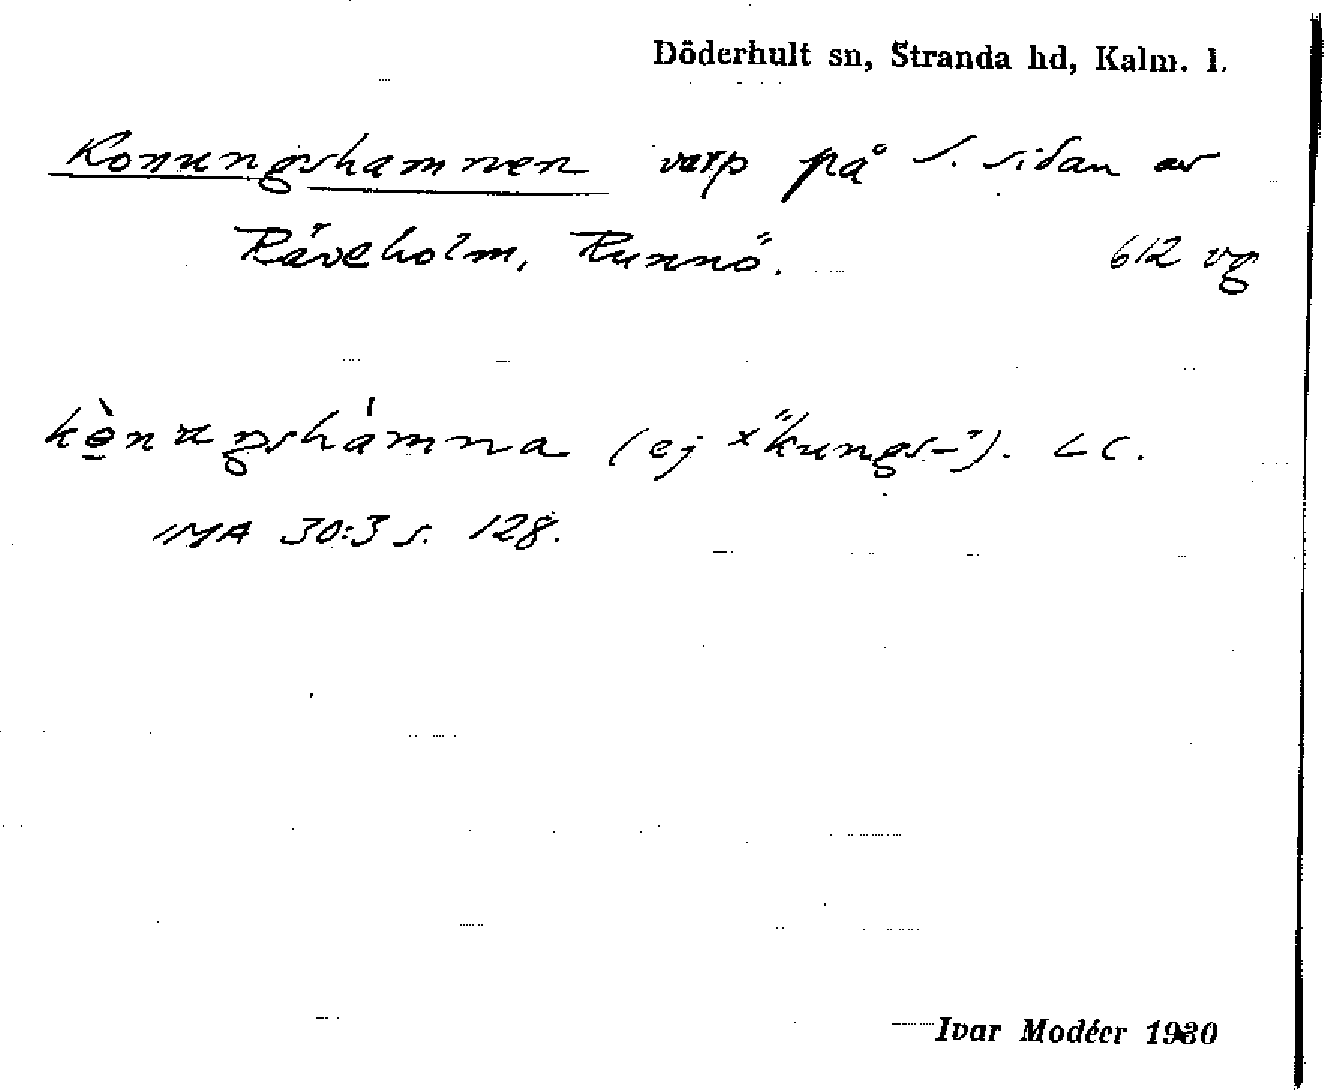 Döderhult sn, Stranda hd, Kalm. l.
Konungshamnen varp på S. sidan av
Räveholm, Runnö. 612 vg
kò̱nungshámna (ej ×"kungs-"). LC.
IMA 30:3 s. 128.
Ivar Modéer 1930